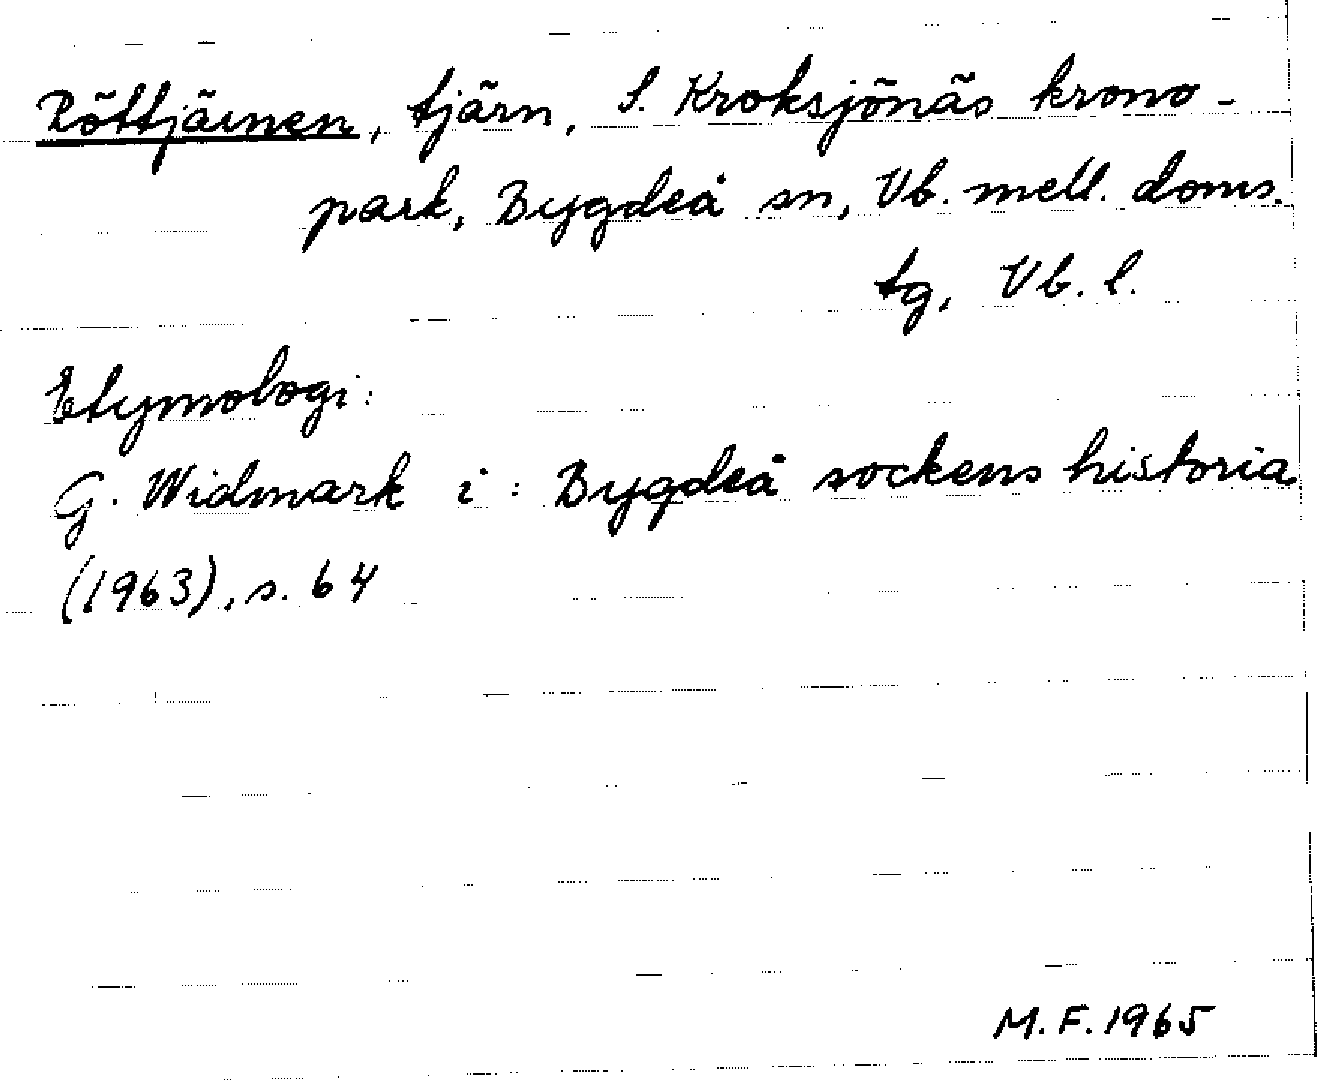 Röttjärnen, tjärn, S. Kroksjönäs krono-
park, Bygdeå sn, Vb. mell. doms.
tg, Vb. l.
Etymologi:
G. Widmark i: Bygdeå sockens historia
(1963), s. 64
M.F. 1965